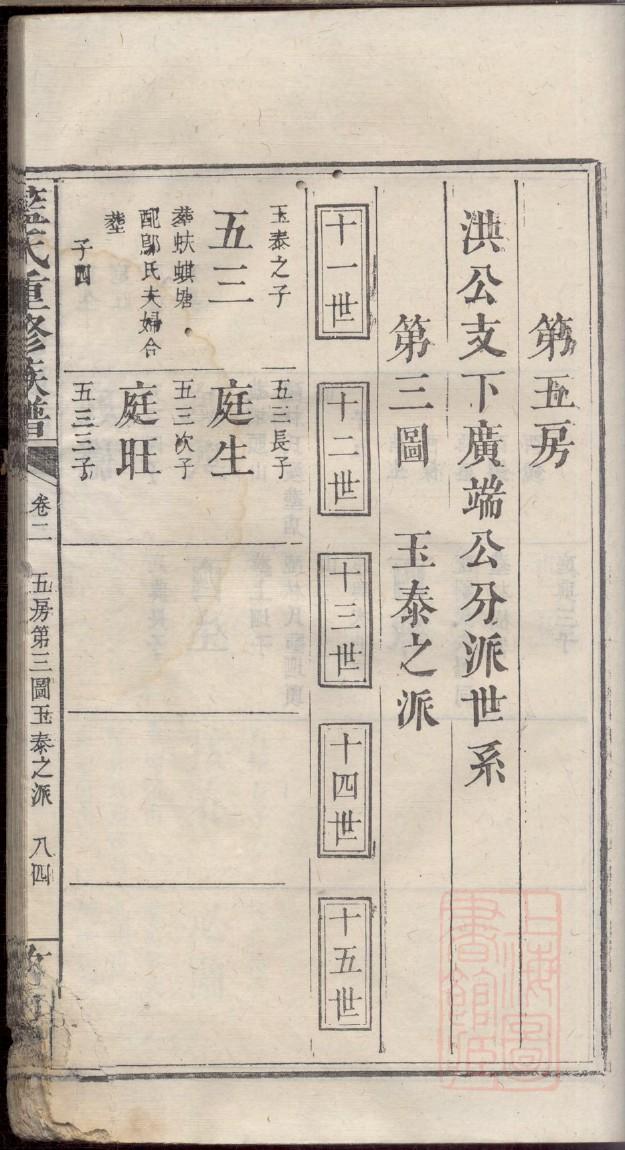 第五房
洪公支下廣端公分派世系
第三圖　玉泰之派
十一世
十二世
十三世
十四世
十五世
玉泰之子
五三
葬蚨蜞塘
配鄔氏夫婦合
塟
子四
五三長子
庭生
五三次子
庭旺
五三三子
藍氏重修族譜
卷二
五房第三圖玉泰之派
八四
上海圖書館藏